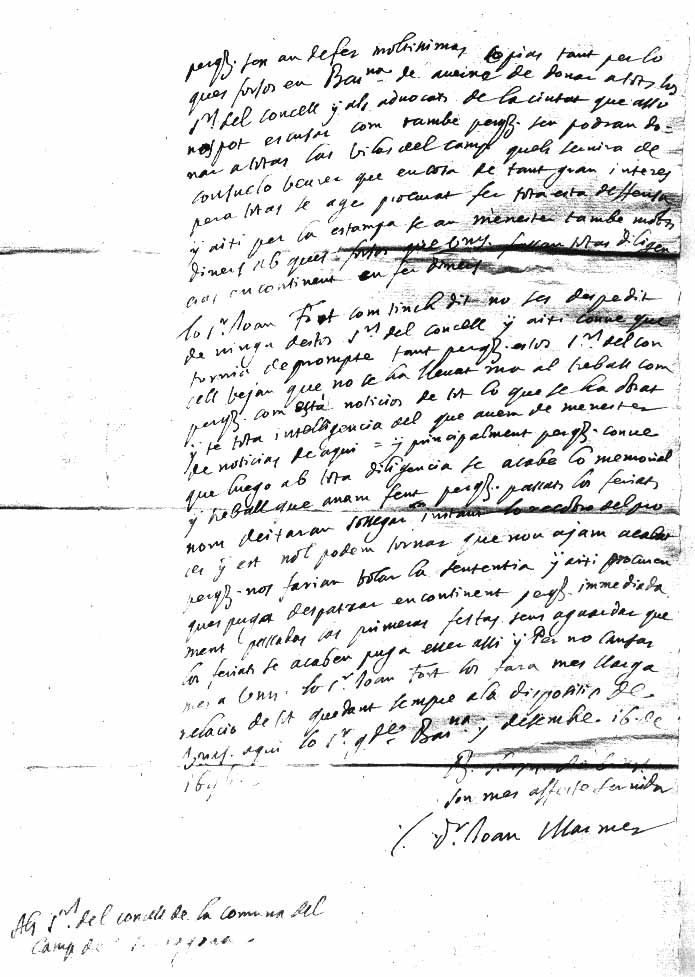 perq̃. sen an de fer moltissimas copias tant per lo
ques fassos en Barna. de aveine de donar a tots los
Srs. del concell y als advocats de la ciutat que asso
nos pot escusar com tambe perq̃. sen podran do-
nar a totas las vilas del camp quels servira de
consuelo veurer que en cosa de tant gran interes
pera totas se age procurat fer tota esta deffensa
y aixi per la estampa se an menester tambe molts
diners ab ques fassan totas diligen
cias encontinent en fer diners
lo Sr. Joan Fort com tinch dit no ses despedit
de ningu destos Srs. del concell y aixi conve que
tornia de prompte tant perq̃. estos Srs. del con
cell vejan que no se ha llevat ma al treball com
perq̃. com està noticios de tot lo que se ha obrat
y te tota intelligencia del que avem de menester
de noticias de aqui = y principalment perq̃. conve
que luego ab tota diligencia se acabe lo memorial
y treball que anam fent perq̃. passats los feriats
nom deixaran sossegar instant del pro
ces y est nol podem tornar que non ajam acabat
perq̃. nos farian botar la sententia y aixi procuren
ques puga despatxar encontinent perq̃. immediada
ment passadas las primeras festas sens aguardar que
los feriats se acaben puga esser assi y Per no cansar
mes a Vms. lo Sr. Joan Fort los fara mes llarga
relacio de tot quedant sempre a la dispositio de
Vms. aqui lo Sr. gde. Barna. y desembre 16 de
son mes affecte servidor
Dr. Joan Marmer
Als Srs. del concell de la comuna del
Camp de Tarragona.